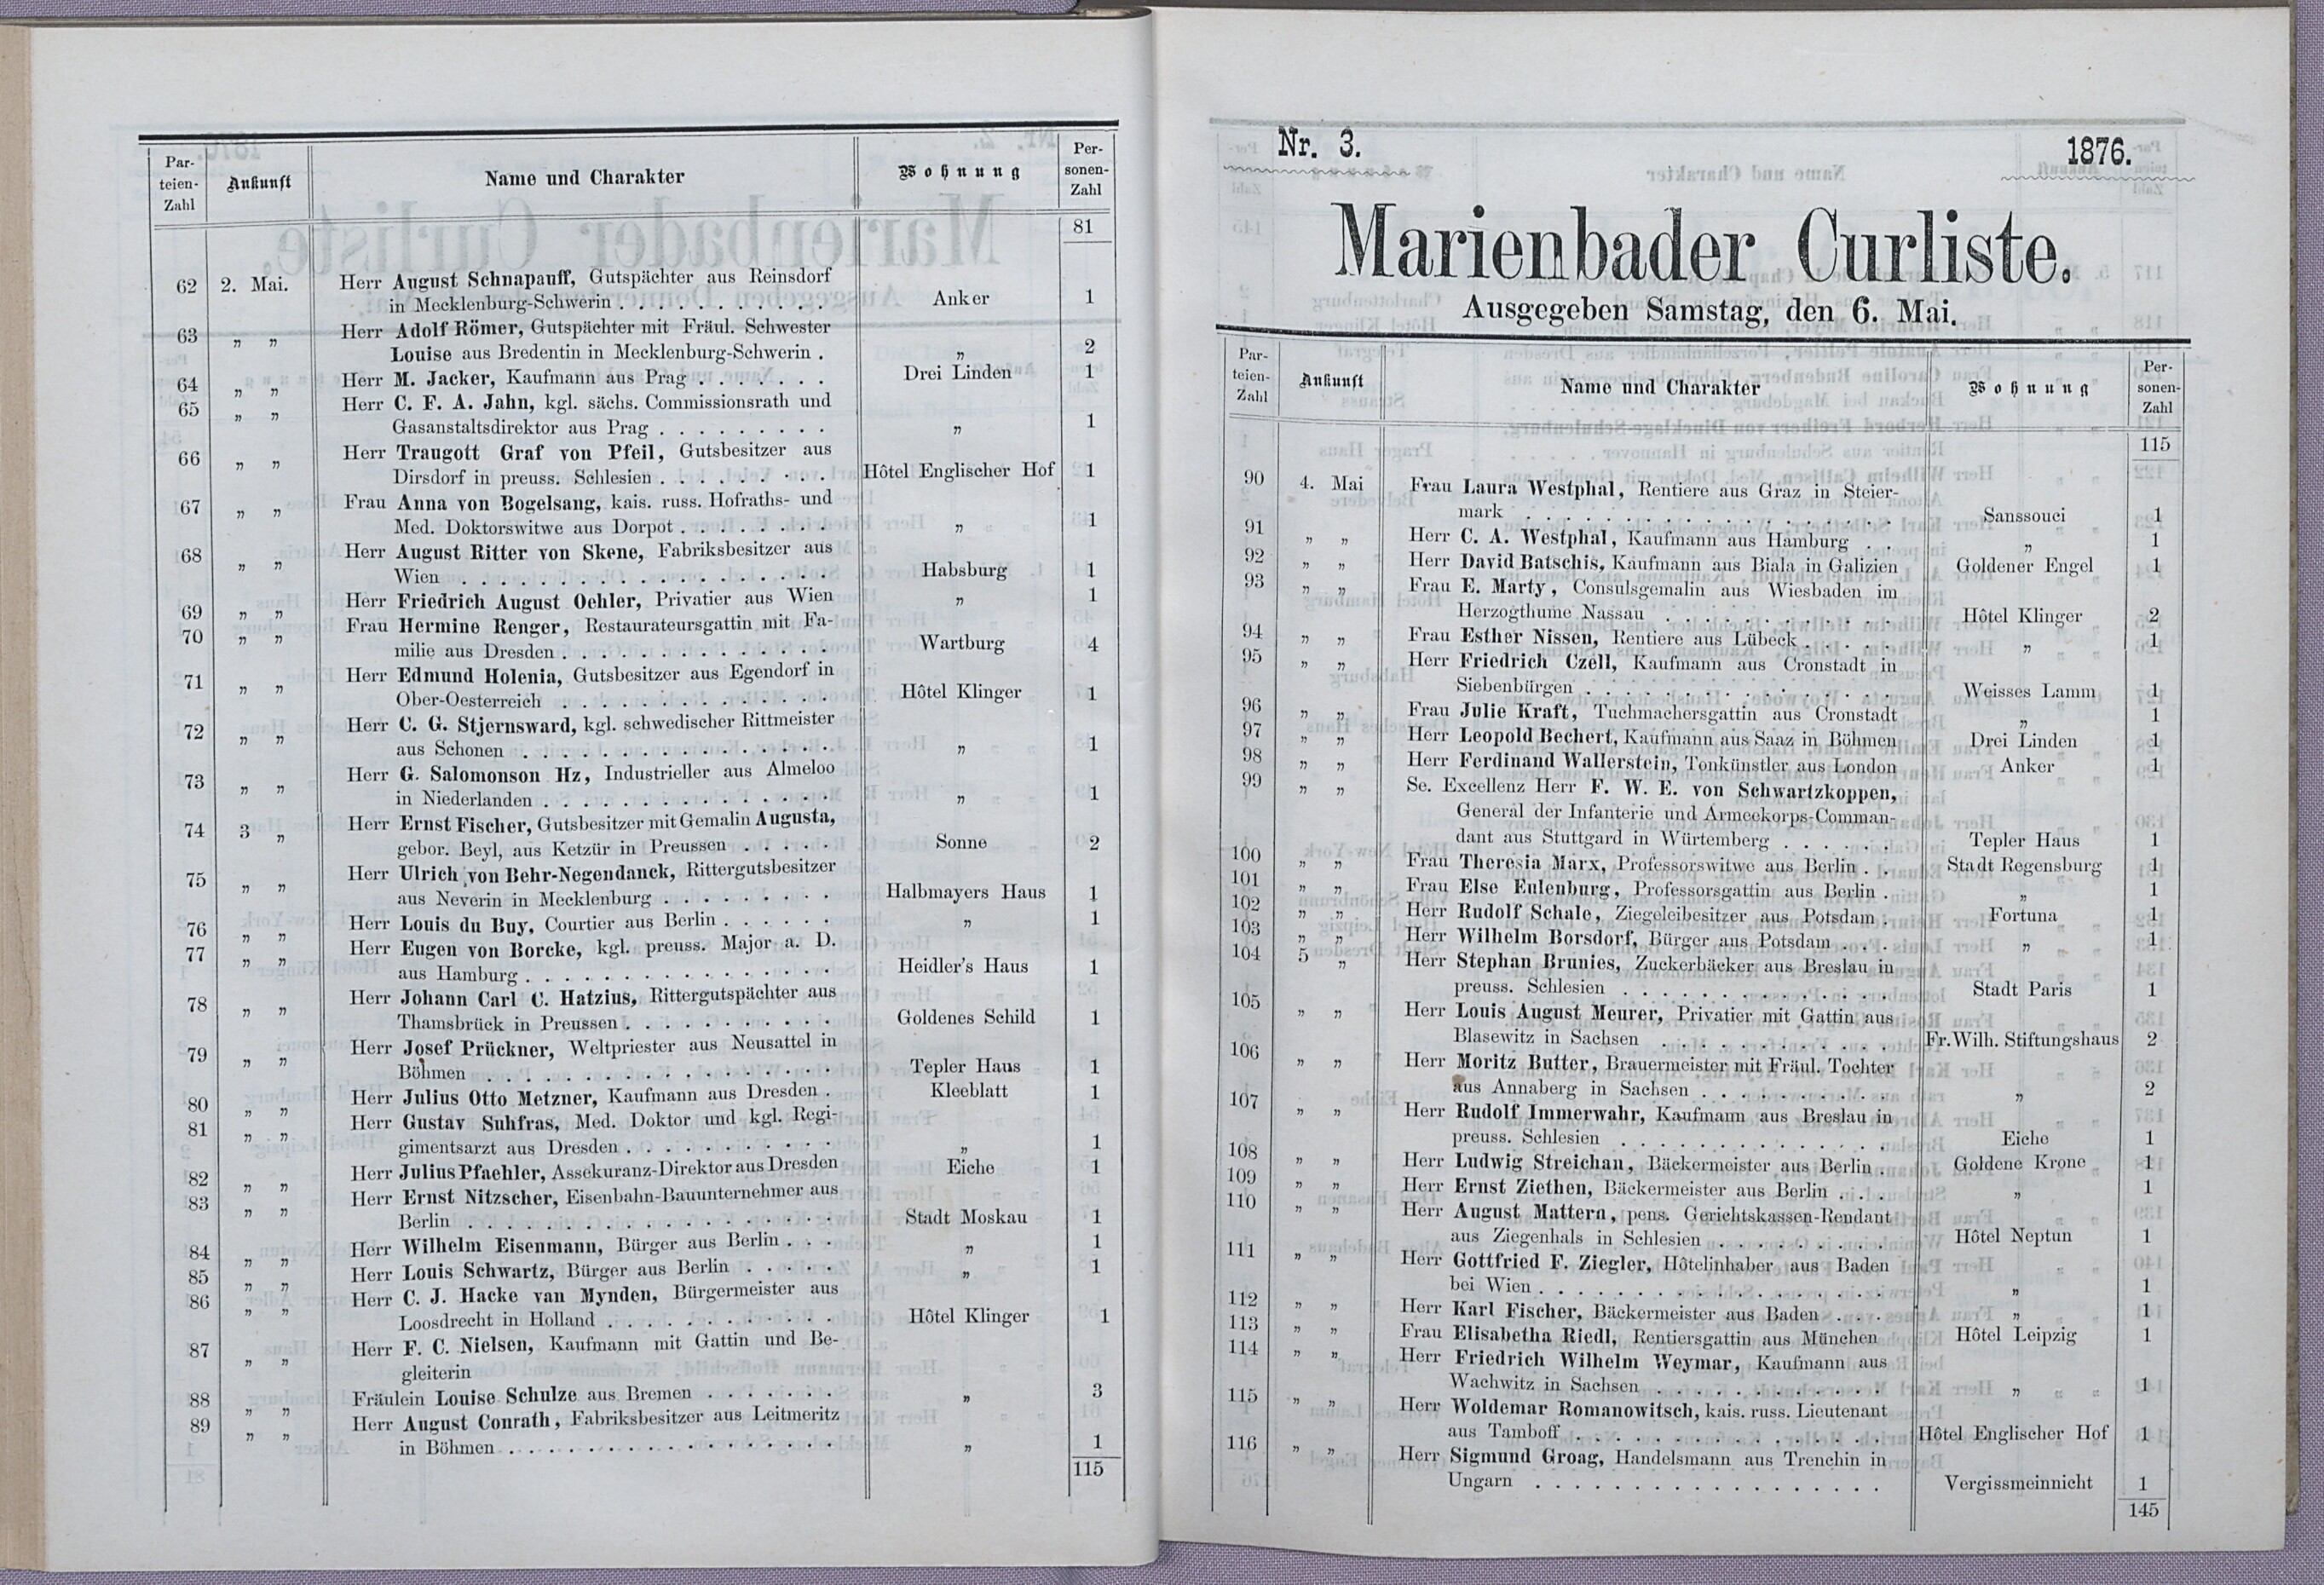 Par-
teien-
Zahl
Ankunft
Name und Charakter
Wohnung
Per-
sonen-
Zahl
81
62 2. Mai. Herr August Schnapauff, Gutspächter aus Reinsdorf
in Mecklenburg-Schwerin . . . . . . . . . . . Anker 1
63 „ „ Herr Adolf Römer, Gutspächter mit Fräul. Schwester
Louise aus Bredentin in Mecklenburg-Schwerin . „ 2
64 „ „ Herr M. Jacker, Kaufmann aus Prag . . . . . . . Drei Linden 1
65 „ „ Herr C. F. A. Jahn, kgl. sächs. Commissionsrath und
Gasanstaltsdirektor aus Prag . . . . . . . . . „ 1
66 „ „ Herr Traugott Graf von Pfeil, Gutsbesitzer aus
Dirsdorf in preuss. Schlesien . . . . . . . . . Hôtel Englischer Hof 1
67 „ „ Frau Anna von Bogelsang, kais. russ. Hofraths- und
Med. Doktorswitwe aus Dorpot . . . . . . . . „ 1
68 „ „ Herr August Ritter von Skene, Fabriksbesitzer aus
Wien . . . . . . . . . . . . . . . . . . . Habsburg 1
69 „ „ Herr Friedrich August Oehler, Privatier aus Wien „ 1
70 „ „ Frau Hermine Renger, Restaurateursgattin mit Fa-
milie aus Dresden . . . . . . . . . . . . . . Wartburg 4
71 „ „ Herr Edmund Holenia, Gutsbesitzer aus Egendorf in
Ober-Oesterreich . . . . . . . . . . . . . . Hôtel Klinger 1
72 „ „ Herr C. G. Stjernsward, kgl. schwedischer Rittmeister
aus Schonen . . . . . . . . . . . . . . . . „ 1
73 „ „ Herr G. Salomonson Hz, Industrieller aus Almeloo
in Niederlanden . . . . . . . . . . . . . . . „ 1
74 3 „ Herr Ernst Fischer, Gutsbesitzer mit Gemalin Augusta,
gebor. Beyl, aus Ketzür in Preussen . . . . . Sonne 2
75 „ „ Herr Ulrich von Behr-Negendanck, Rittergutsbesitzer
aus Neverin in Mecklenburg . . . . . . . . . Halbmayers Haus 1
76 „ „ Herr Louis du Buy, Courtier aus Berlin . . . . . . „ 1
77 „ „ Herr Eugen von Borcke, kgl. preuss. Major a. D.
aus Hamburg . . . . . . . . . . . . . . . . Heidler's Haus 1
78 „ „ Herr Johann Carl C. Hatzius, Rittergutspächter aus
Thamsbrück in Preussen . . . . . . . . . . . Goldenes Schild 1
79 „ „ Herr Josef Prückner, Weltpriester aus Neusattel in
Böhmen . . . . . . . . . . . . . . . . . . Tepler Haus 1
80 „ „ Herr Julius Otto Metzner, Kaufmann aus Dresden . Kleeblatt 1
81 „ „ Herr Gustav Suhfras, Med. Doktor und kgl. Regi-
gimentsarzt aus Dresden . . . . . . . . . . . „ 1
82 „ „ Herr Julius Pfaehler, Assekuranz-Direktor aus Dresden Eiche 1
83 „ „ Herr Ernst Nitzscher, Eisenbahn-Bauunternehmer aus
Berlin . . . . . . . . . . . . . . . . . . . Stadt Moskau 1
84 „ „ Herr Wilhelm Eisenmann, Bürger aus Berlin . . . „ 1
85 „ „ Herr Louis Schwartz, Bürger aus Berlin . . . . . „ 1
86 „ „ Herr C. J. Hacke van Mynden, Bürgermeister aus
Loosdrecht in Holland . . . . . . . . . . . . Hôtel Klinger 1
87 „ „ Herr F. C. Nielsen, Kaufmann mit Gattin und Be-
gleiterin
88 „ „ Fräulein Louise Schulze aus Bremen . . . . . . . „ 3
89 „ „ Herr August Conrath, Fabriksbesitzer aus Leitmeritz
in Böhmen . . . . . . . . . . . . . . . . . „ 1
115
Nr. 3. 1876.
Marienbader Curliste.
Ausgegeben Samstag, den 6. Mai.
Par-
teien-
Zahl
Ankunft
Name und Charakter
Wohnung
Per-
sonen-
Zahl
115
90 4. Mai Frau Laura Westphal, Rentiere aus Graz in Steier-
mark . . . . . . . . . . . . . . . . . . Sanssouci 1
91 „ „ Herr C. A. Westphal, Kaufmann aus Hamburg . . „ 1
92 „ „ Herr David Batschis, Kaufmann aus Biala in Galizien Goldener Engel 1
93 „ „ Frau E. Marty, Consulsgemalin aus Wiesbaden im
Herzogthume Nassau . . . . . . . . . . . . Hôtel Klinger 2
94 „ „ Frau Esther Nissen, Rentiere aus Lübeck . . . . „ 1
95 „ „ Herr Friedrich Czell, Kaufmann aus Cronstadt in
Siebenbürgen . . . . . . . . . . . . . . . Weisses Lamm 1
96 „ „ Frau Julie Kraft, Tuchmachersgattin aus Cronstadt „ 1
97 „ „ Herr Leopold Bechert, Kaufmann aus Saaz in Böhmen Drei Linden 1
98 „ „ Herr Ferdinand Wallerstein, Tonkünstler aus London Anker 1
99 „ „ Se. Excellenz Herr F. W. E. von Schwartzkoppen,
General der Infanterie und Armeekorps-Comman-
dant aus Stuttgard in Würtemberg . . . . . . Tepler Haus 1
100 „ „ Frau Theresia Marx, Professorswitwe aus Berlin . . Stadt Regensburg 1
101 „ „ Frau Else Eulenburg, Professorsgattin aus Berlin . „ 1
102 „ „ Herr Rudolf Schale, Ziegeleibesitzer aus Potsdam . Fortuna 1
103 „ „ Herr Wilhelm Borsdorf, Bürger aus Potsdam . . . „ 1
104 5 „ Herr Stephan Brunies, Zuckerbäcker aus Breslau in
preuss. Schlesien . . . . . . . . . . . . . Stadt Paris 1
105 „ „ Herr Louis August Meurer, Privatier mit Gattin aus
Blasewitz in Sachsen . . . . . . . . . . . Fr. Wilh. Stiftungshaus 2
106 „ „ Herr Moritz Butter, Brauermeister mit Fräul. Tochter
aus Annaberg in Sachsen . . . . . . . . . . „ 2
107 „ „ Herr Rudolf Immerwahr, Kaufmann aus Breslau in
preuss. Schlesien . . . . . . . . . . . . . Eiche 1
108 „ „ Herr Ludwig Streichan, Bäckermeister aus Berlin . Goldene Krone 1
109 „ „ Herr Ernst Ziethen, Bäckermeister aus Berlin . . . „ 1
110 „ „ Herr August Mattern, pens. Gerichtskassen-Rendant
aus Ziegenhals in Schlesien . . . . . . . . . Hôtel Neptun 1
111 „ „ Herr Gottfried F. Ziegler, Hôtelinhaber aus Baden
bei Wien . . . . . . . . . . . . . . . . . „ 1
112 „ „ Herr Karl Fischer, Bäckermeister aus Baden . . . „ 1
113 „ „ Frau Elisabetha Riedl, Rentiersgattin aus München Hôtel Leipzig 1
114 „ „ Herr Friedrich Wilhelm Weymar, Kaufmann aus
Wachwitz in Sachsen . . . . . . . . . . . „ 1
115 „ „ Herr Woldemar Romanowitsch, kais. russ. Lieutenant
aus Tamboff . . . . . . . . . . . . . . . Hôtel Englischer Hof 1
116 „ „ Herr Sigmund Groag, Handelsmann aus Trenchin in
Ungarn . . . . . . . . . . . . . . . . . Vergissmeinnicht 1
145